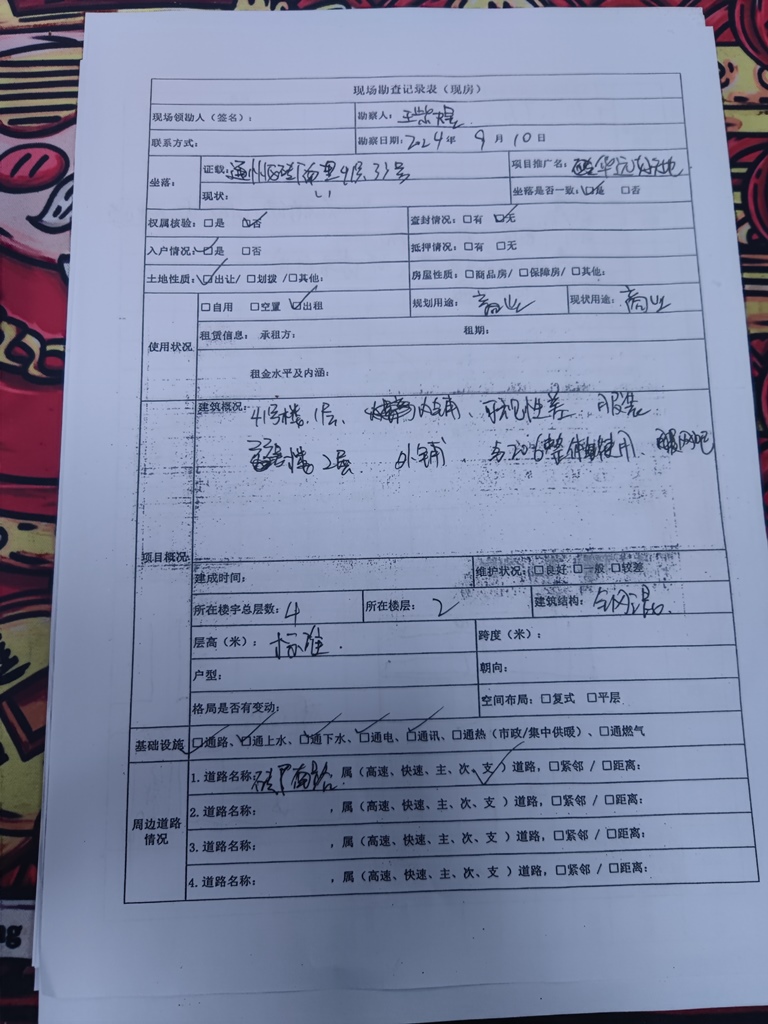 现场勘查记录表（现房）
现场领勘人（签名）： 勘察人：
联系方式： 勘察日期：2024年 9月 10日
坐落： 证载：通州区 南里 33号 项目推广名： 华元
现状： 坐落是否一致：☑是 □否
权属核验：□是 ☑否 查封情况：□有 ☑无
入户情况：☑是 □否 抵押情况：□有 □无
土地性质：☑出让/□划拨 /□其他： 房屋性质：□商品房/ □保障房/ □其他：
使用状况 □自用 □空置 ☑出租 规划用途：商业 现状用途：商业
租赁信息： 承租方： 租期：
租金水平及内涵：
项目概况 建筑概况：
41号楼 1层、 内铺、可视性差、服装
号楼2层 外铺 与206整体使用、 网吧
建成时间： 维护状况：□良好 □一般 □较差
所在楼宇总层数：4 所在楼层：2 建筑结构：钢混
层高（米）：标准 跨度（米）：
户型： 朝向：
格局是否有变动： 空间布局：□复式 □平层
基础设施 ☑通路、☑通上水、☑通下水、☑通电、☑通讯、□通热（市政/集中供暖）、□通燃气
周边道路情况 1.道路名称： ，属（高速、快速、主、次、支✓）道路，□紧邻 / □距离：
2.道路名称： ，属（高速、快速、主、次、支 ）道路，□紧邻 / □距离：
3.道路名称： ，属（高速、快速、主、次、支 ）道路，□紧邻 / □距离：
4.道路名称： ，属（高速、快速、主、次、支 ）道路，□紧邻 / □距离：